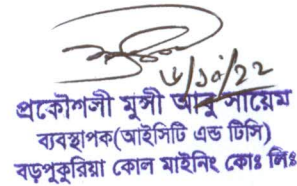 ৬/১০/২২
প্রকৌশলী মুন্সী আবু সায়েম
ব্যবস্থাপক(আইসিটি এন্ড টিসি)
বড়পুকুরিয়া কোল মাইনিং কোঃ লিঃ